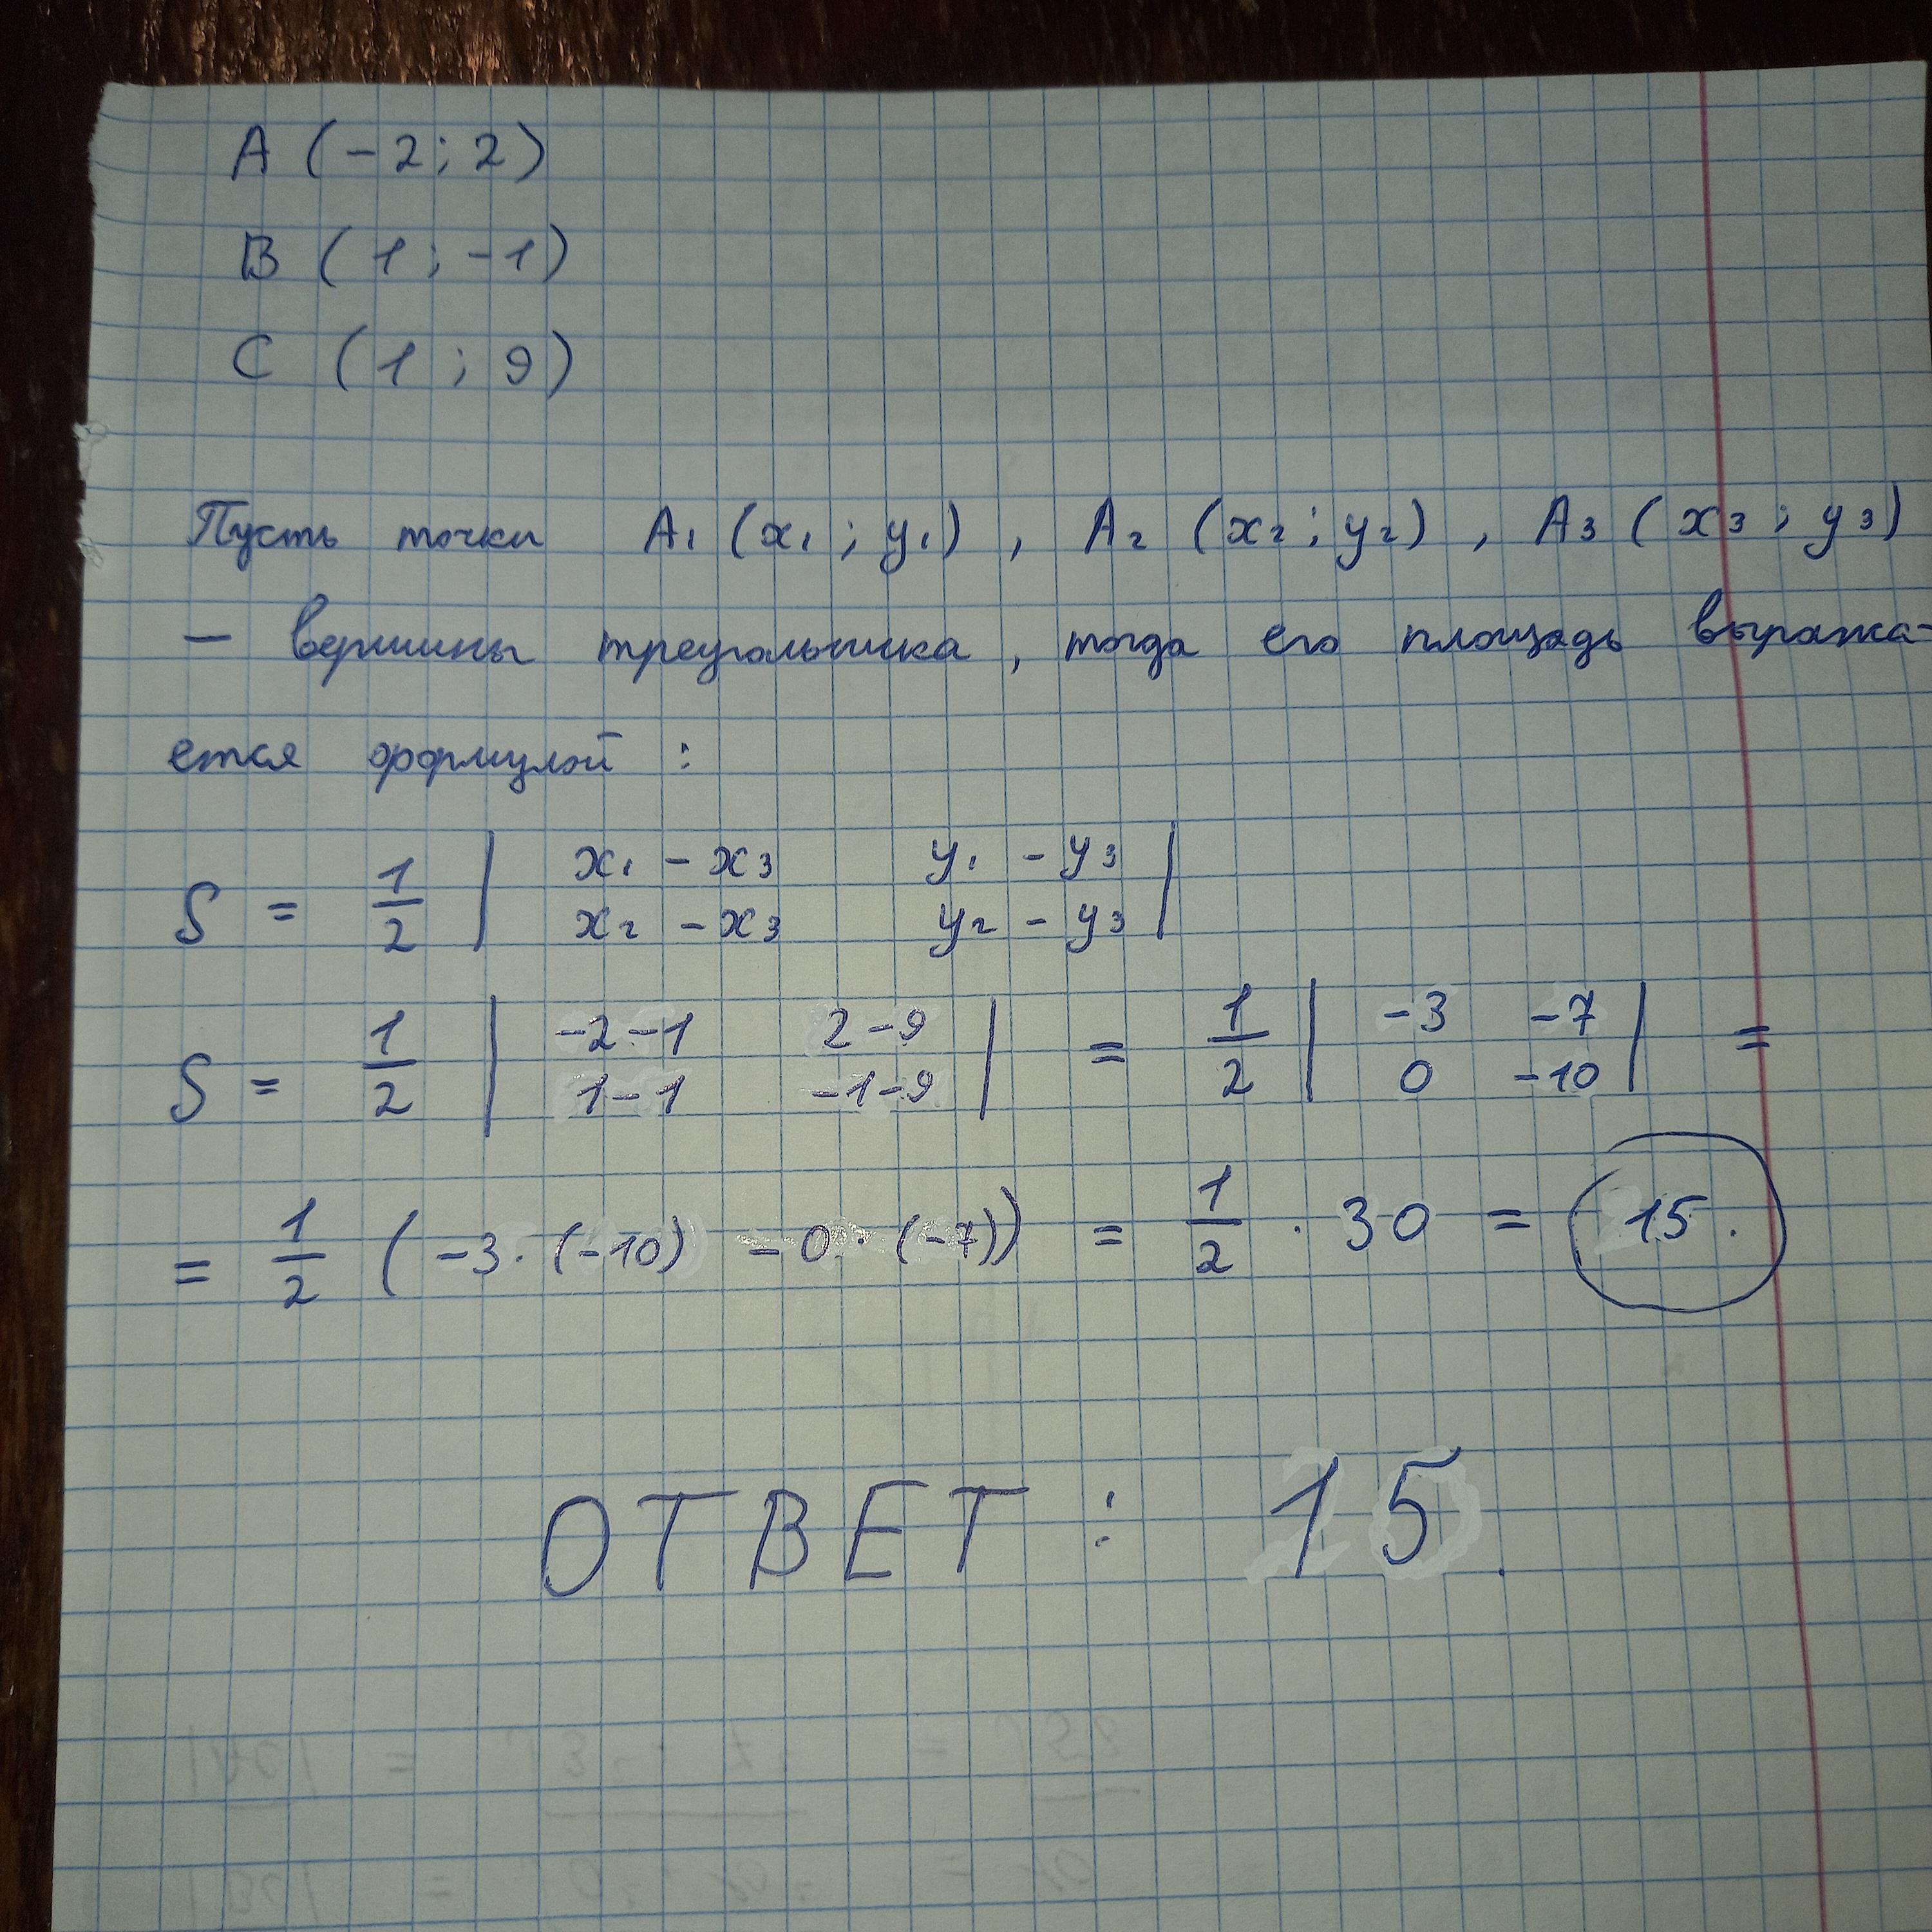 A (-2; 2)
B (1; -1)
C (1; 9)
Пусть точки A₁ (x₁; y₁), A₂ (x₂; y₂), A₃ (x₃; y₃)
— вершины треугольника, тогда его площадь выража-
ется формулой:
S = 1/2 | x₁ - x₃ y₁ - y₃ |
| x₂ - x₃ y₂ - y₃ |
S = 1/2 | -2-1 2-9 | = 1/2 | -3 -7 | =
| 1-1 -1-9 | | 0 -10 |
= 1/2 (-3·(-10) - 0·(-7)) = 1/2 · 30 = 15.
ОТВЕТ: 15.